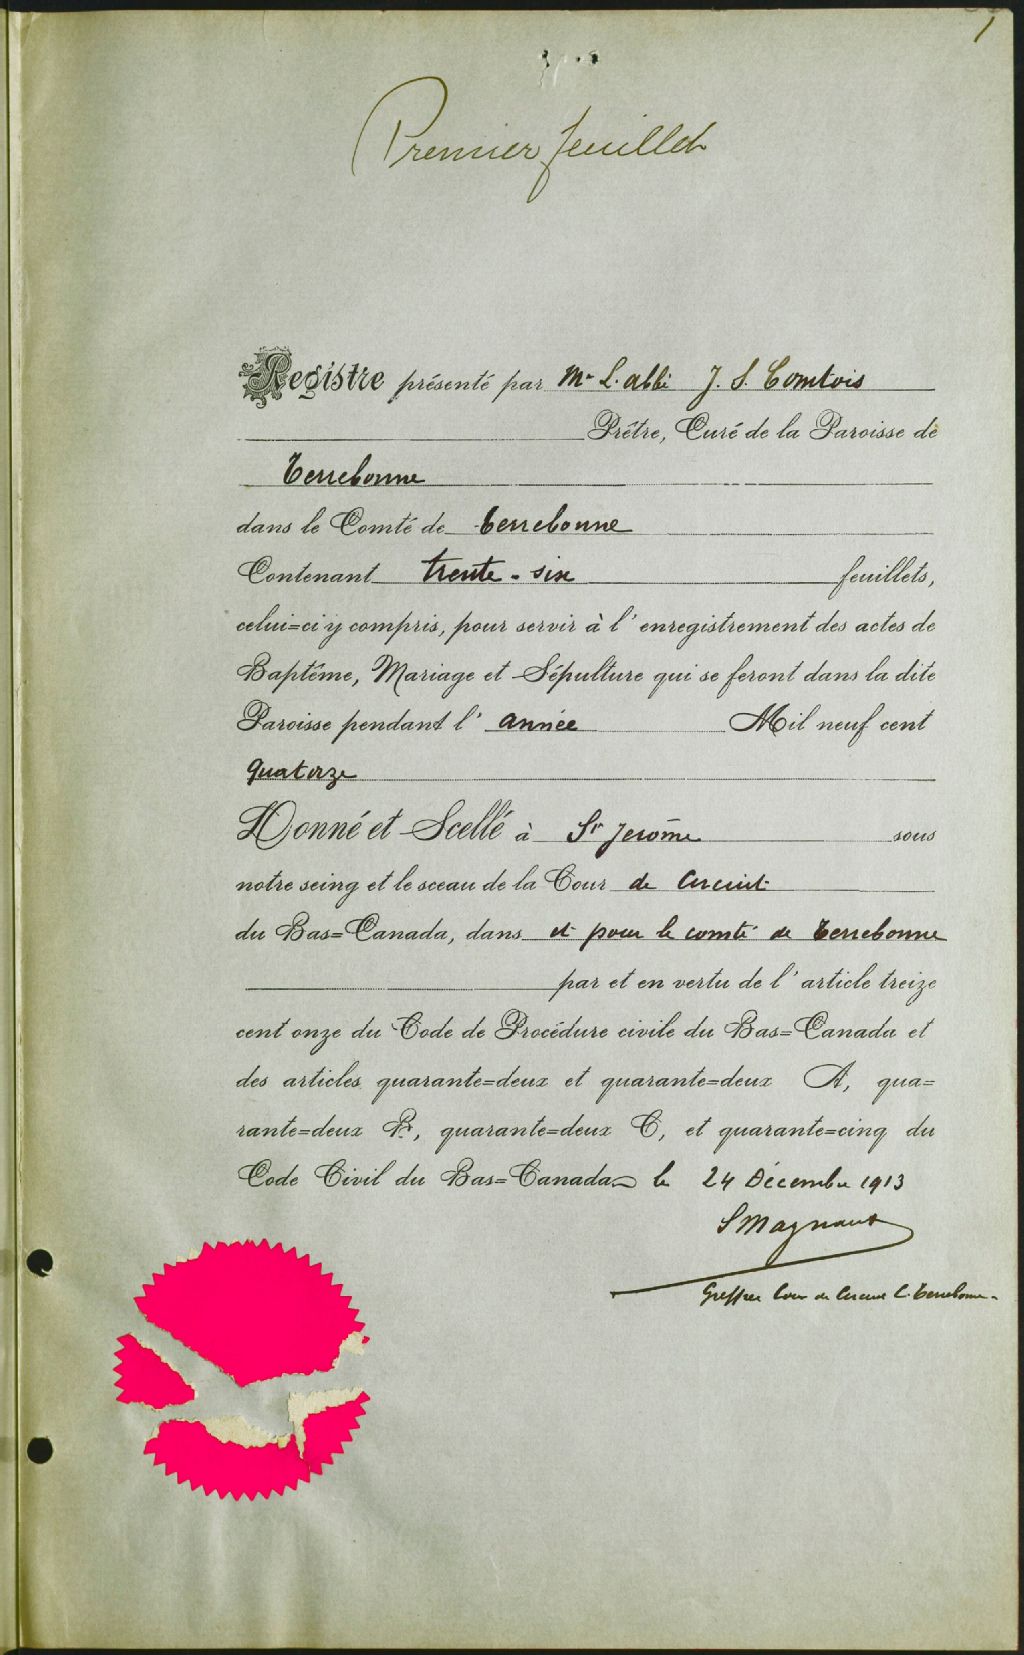 1
Premier feuillet
Registre présenté par Mr L. abbé J. S. Comtois
Prêtre, Curé de la Paroisse de
Terrebonne
dans le Comté de Terrebonne
Contenant trente-six feuillets,
celui=ci y compris, pour servir à l'enregistrement des actes de
Baptême, Mariage et Sépulture qui se feront dans la dite
Paroisse pendant l'année Mil neuf cent
quatorze
Donné et Scellé à St Jerôme sous
notre seing et le sceau de la Cour de Circuit
du Bas=Canada, dans et pour le comté de Terrebonne
par et en vertu de l'article treize
cent onze du Code de Procédure civile du Bas=Canada et
des articles quarante=deux et quarante=deux A, qua=
rante=deux B, quarante=deux C, et quarante=cinq du
Code Civil du Bas=Canada le 24 Décembre 1913
S Magnant
Greffier Cour de Circuit C. Terrebonne